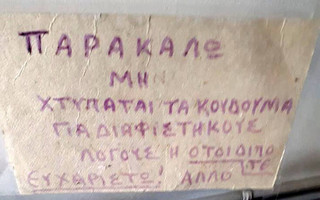 ΠΑΡΑΚΑΛΩ
ΜΗΝ
ΧΤΥΠΑΤΑΙ ΤΑ ΚΟΥΔΟΥΝΙΑ
ΓΙΑ ΔΙΑΦΙΣΤΗΚΟΥΣ
ΛΟΓΟΥΣ Η ΟΤΟΙΔΙΠΟ
ΤΕ
ΕΥΧΑΡΙΣΤΩ! ΑΛΛΟ